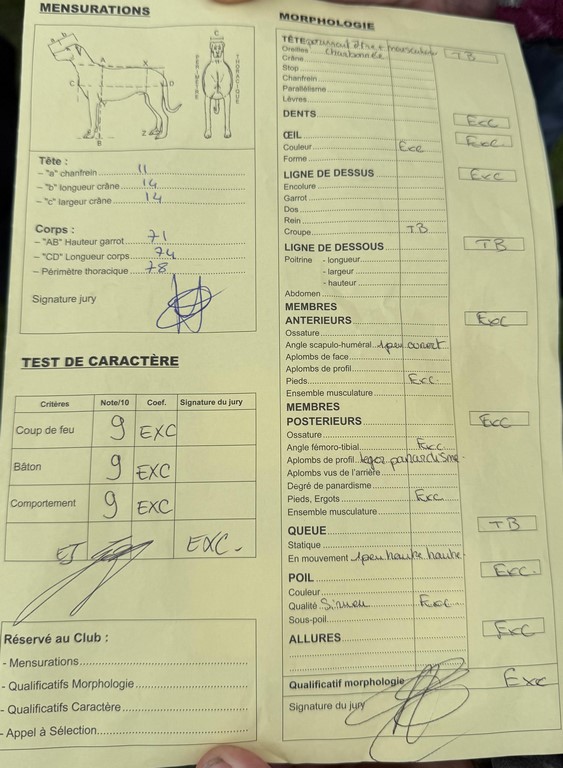 MENSURATIONS
Tête :
– "a" chanfrein 11
– "b" longueur crâne 14
– "c" largeur crâne 14
Corps :
– "AB" Hauteur garrot 71
– "CD" Longueur corps 74
– Périmètre thoracique 78
Signature jury
TEST DE CARACTÈRE
Critères Note/10 Coef. Signature du jury
Coup de feu 9 EXC
Bâton 9 EXC
Comportement 9 EXC
EXC.
Réservé au Club :
- Mensurations
- Qualificatifs Morphologie
- Qualificatifs Caractère
- Appel à Sélection
MORPHOLOGIE
TÊTE pourrait être + TB
Oreilles charbonnée
Crâne
Stop
Chanfrein
Parallélisme
Lèvres
DENTS Exc
ŒIL Exc.
Couleur Exc
Forme
LIGNE DE DESSUS Exc
Encolure
Garrot
Dos
Rein
Croupe TB
LIGNE DE DESSOUS TB
Poitrine - longueur
- largeur
- hauteur
Abdomen
MEMBRES
ANTERIEURS Exc
Ossature
Angle scapulo-huméral 1 peu ouvert
Aplombs de face
Aplombs de profil
Pieds Exc.
Ensemble musculature
MEMBRES
POSTERIEURS Exc
Ossature
Angle fémoro-tibial Exc.
Aplombs de profil leger panardisme
Aplombs vus de l'arrière
Degré de panardisme
Pieds, Ergots Exc
Ensemble musculature
QUEUE TB
Statique
En mouvement 1 peu haute haute
POIL Exc.
Couleur
Qualité Exc
Sous-poil
ALLURES Exc
Qualificatif morphologie Exc
Signature du jury